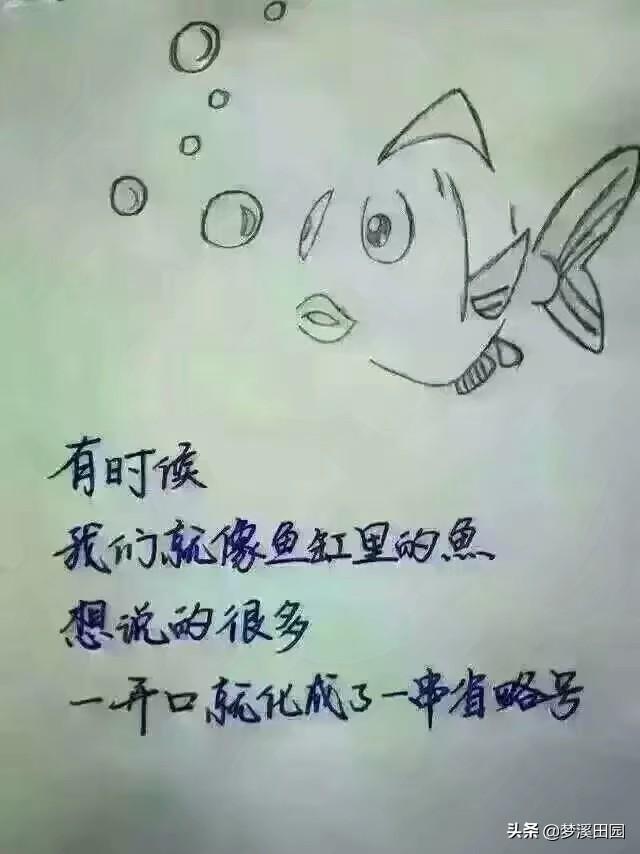 有时候
我们就像鱼缸里的魚
想说的很多
一开口就化成了一串省略号
头条 @梦溪田园